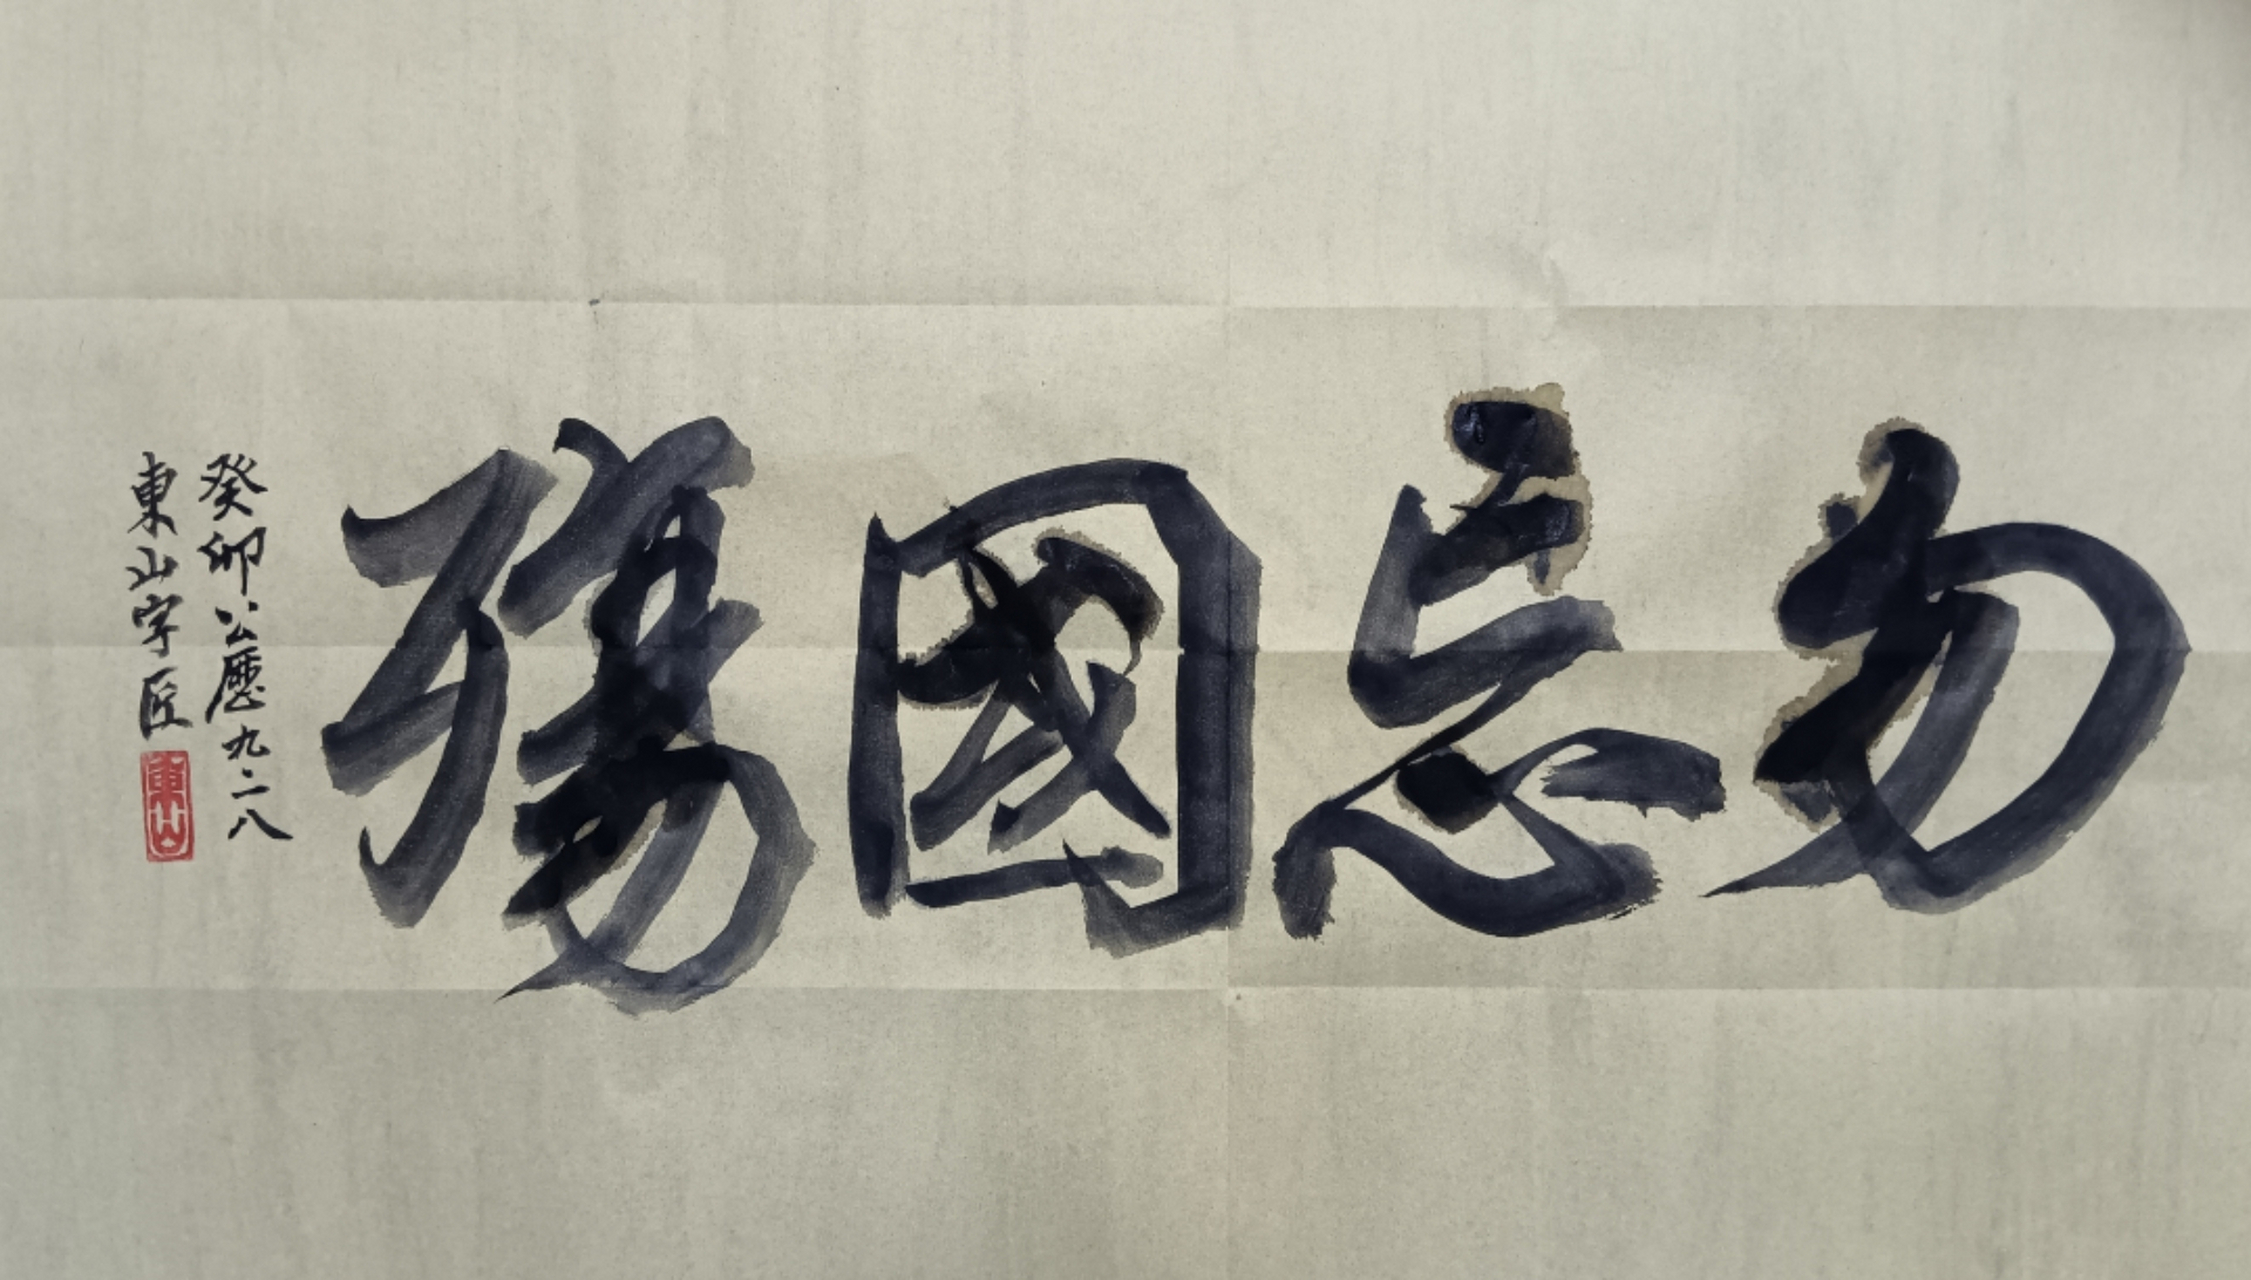 勿忘國殤
癸卯公歷九·一八
東山字匠
東山